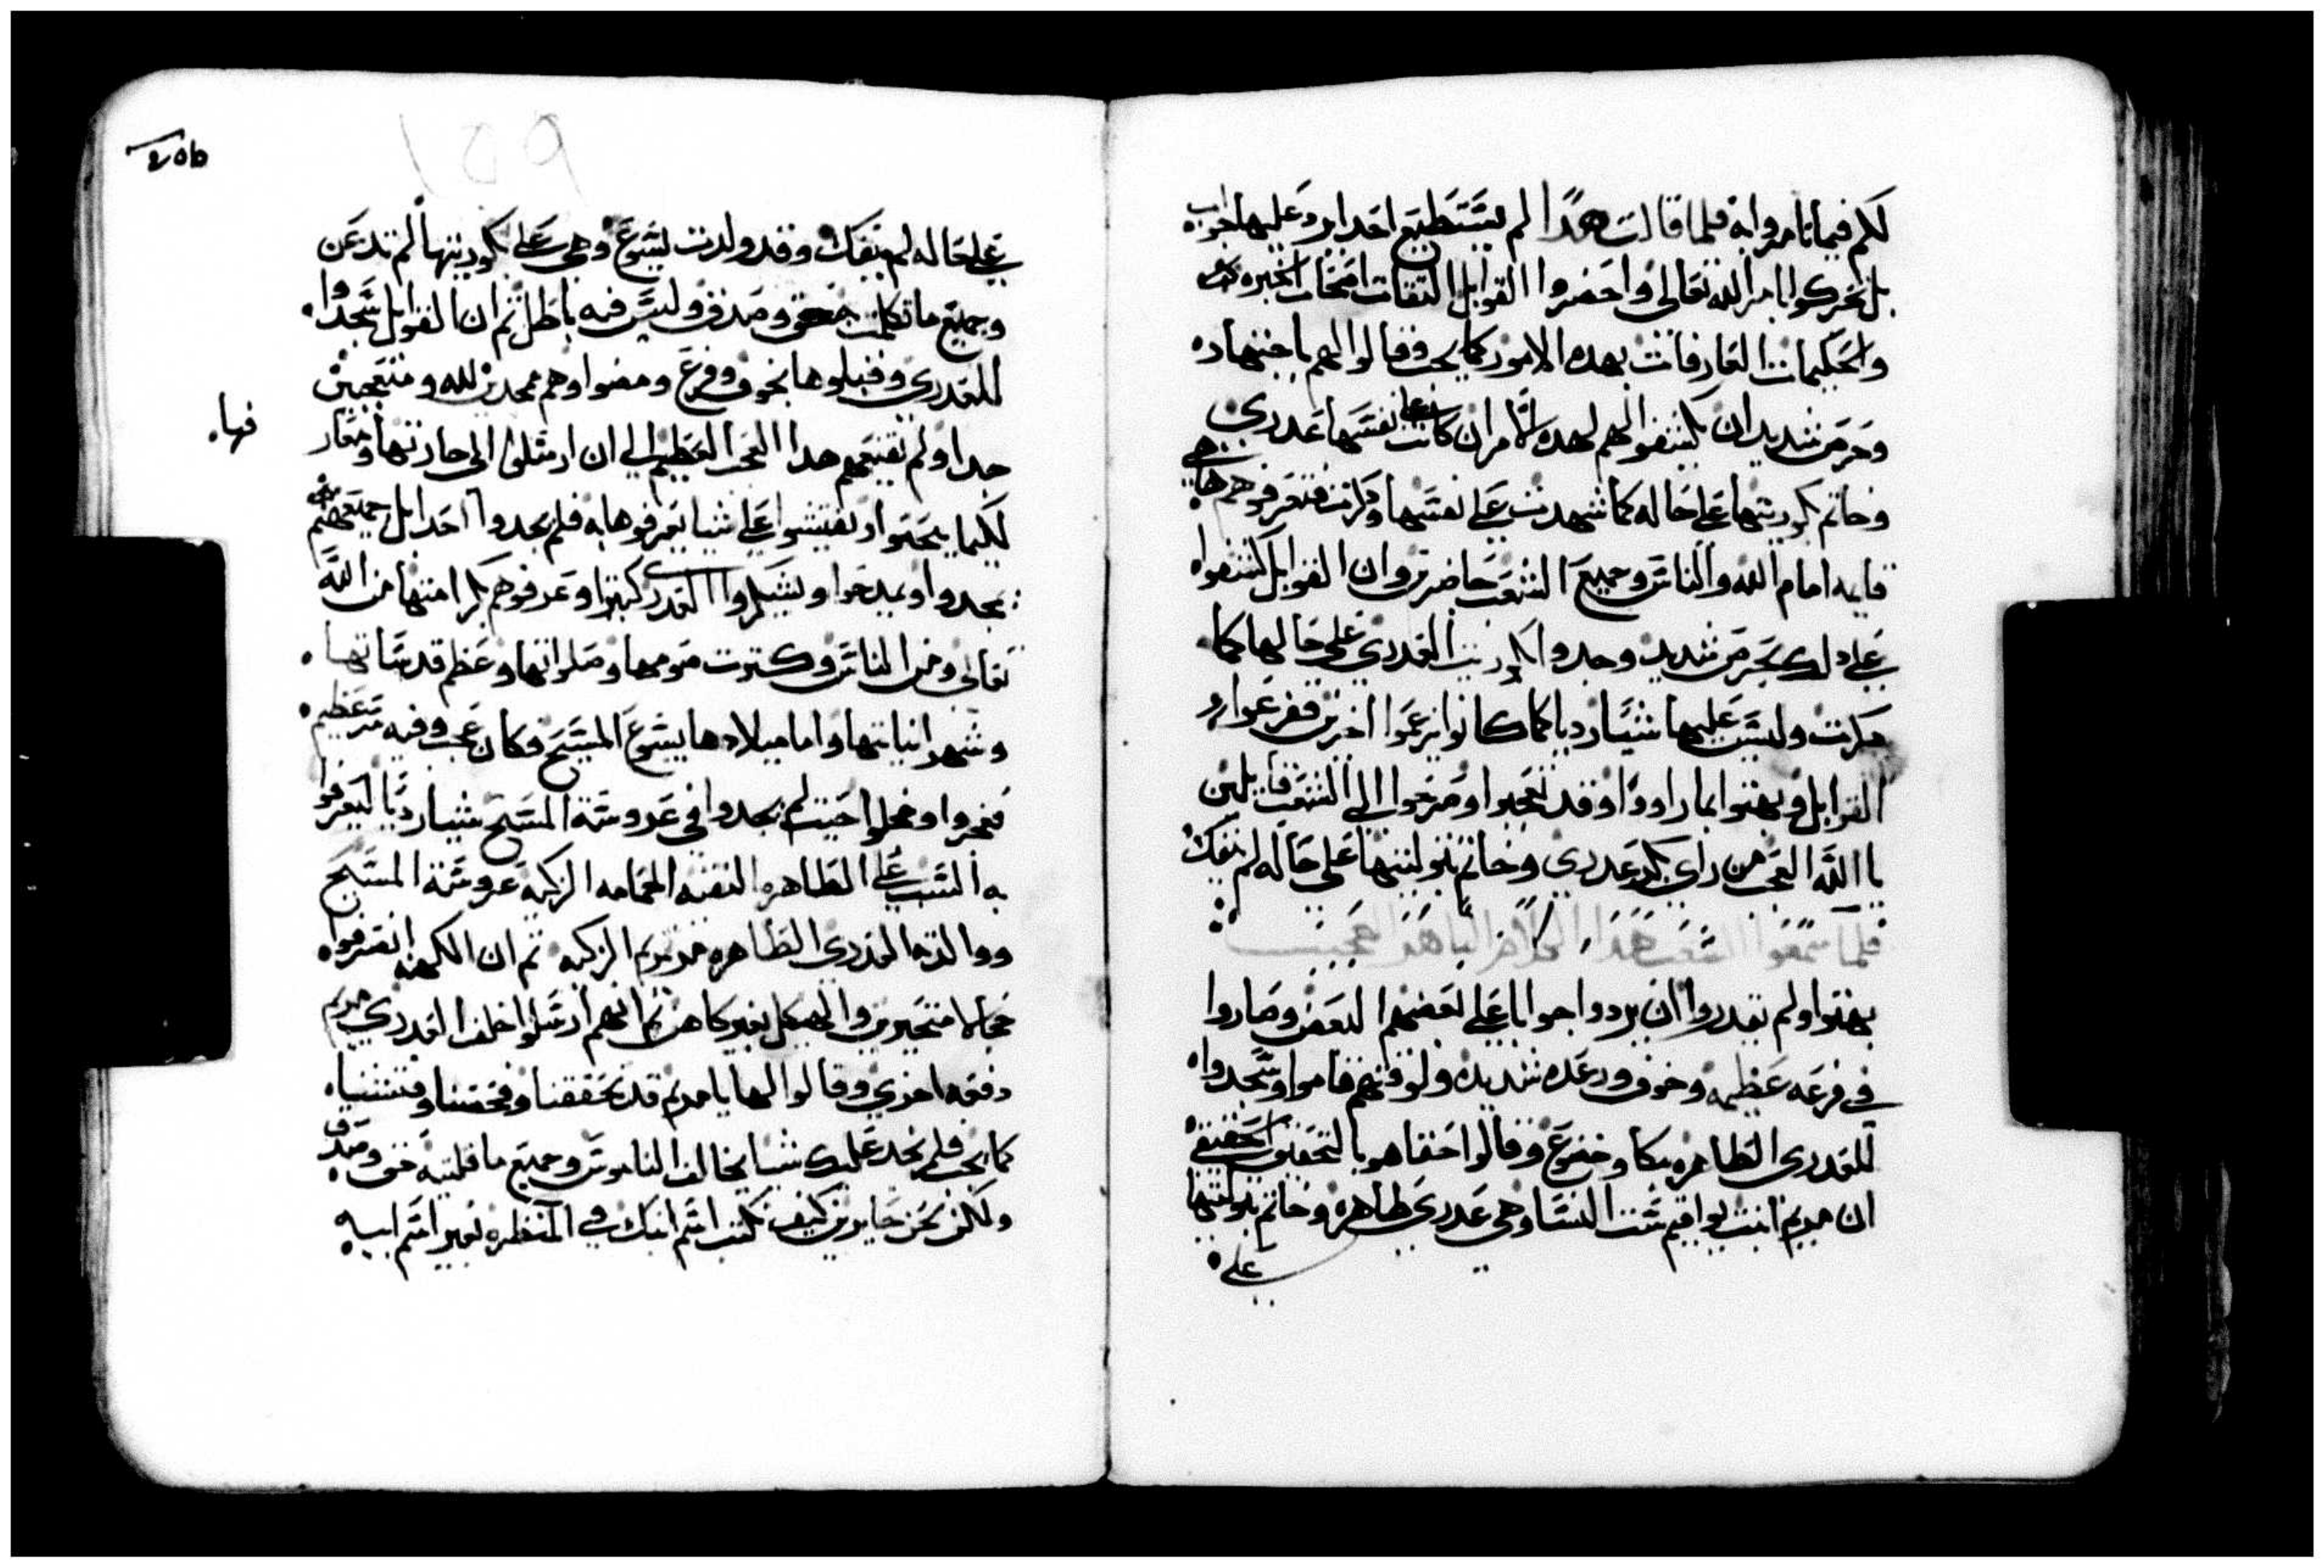 لكم فيما تامروا به فلما قالت هدا لم يستطيع احدا يرد عليها جواب
بل تحركوا بامر الله تعالى واحضروا القوابل التقات اصحاب الخبره
والحكيمات العارفات بهده الامور كما يجب وقالوا لهم باجتهاد
وحرص شديد ان يكشفوا لهم لهده الامر ان كانت نفسها عدرى
وخاتم بكوريتها على حاله كما شهدت على نفسها ودكرت فتعرفوهم
قايمه امام الله والناس وجميع الشعب حاضرين وان القوابل كشفوا
على دلك بحرص شديد وجدوا بكوريت العدرى على حالها كما
دكرت وليس عليها شيا رديا كما كانوا يزعموا اخرين ففزعوا
القوابل وبهتوا بما راووا وقد تعجبوا وصرخوا الى الشعب قايلين
يا الله العجب من راى بكر عدرى وخاتم بتوليتها على حاله لم ينفك
فلما سمعوا الشعب هدا الكلام الباهر العجيب
بهتوا ولم يقدروا ان يردوا جوابا على بعضهم البعض وصاروا
في فزعه عظيمه وخوف ورعده شديده ولوقتهم قاموا وسجدوا
للعدرى الطاهره ببكا وخضوع وقالوا حقا هو بالتحقيق الحقيقي
ان مريم ابنت يواقيم ست النسا وهي عدرى طاهره وخاتم بتوليتها
على
١٥٩
على حاله لم ينفك وقد ولدت يسوع وهي على بكوريتها لم تدعن
وجميع ما تكلمت بحق وصدق وليس فيه باطل ثم ان القوابل سجدوا
للعدرى وقبلوها بخوف وفزع ومضوا وهم ممجدين لله ومتعجبين
جدا ولم تقنعهم هدا العجب العظيم الى ان ارسلوا الى حارتها ومعار
فها
لكيما يبحتوا ويفتشوا على شيا يعرفوها به فلم يجدوا احدا بل جميعهم
يمجدوا ويمدحوا ويشكروا العدرى كتيرا وعرفوهم بكرامتها من الله
تعالى ومن الناس وكترت صومها وصلواتها وعظم قدساتها
وشهدا نياتها واما ميلادها يسوع المسيح فكان عجب وفيه سر عظيم
فتحيروا وخجلوا حيت لم يجدوا في عروسة المسيح شيا رديا ليعرفوا
به السبب على الطاهره النقيه الحمامه الزكيه عروسة المسيح
ووالدته العدرى الطاهره مريم الزكيه تم ان الكهنه انصرفوا
خجالا متحيرين والهيكل بغير كاهن تم انهم ارسلوا خلف العدرى مريم
دفعه اخرى وقالوا لها يا مريم قد تحققنا وفحصنا وفتشنا
كما يجب فلم نجد عليك شيا يخالف الناموس وجميع ما قلتيه حق وصدق
ولكن نحن حايرين كيف نكتب اسم ابنك في المنظره بغير اسم ابيه